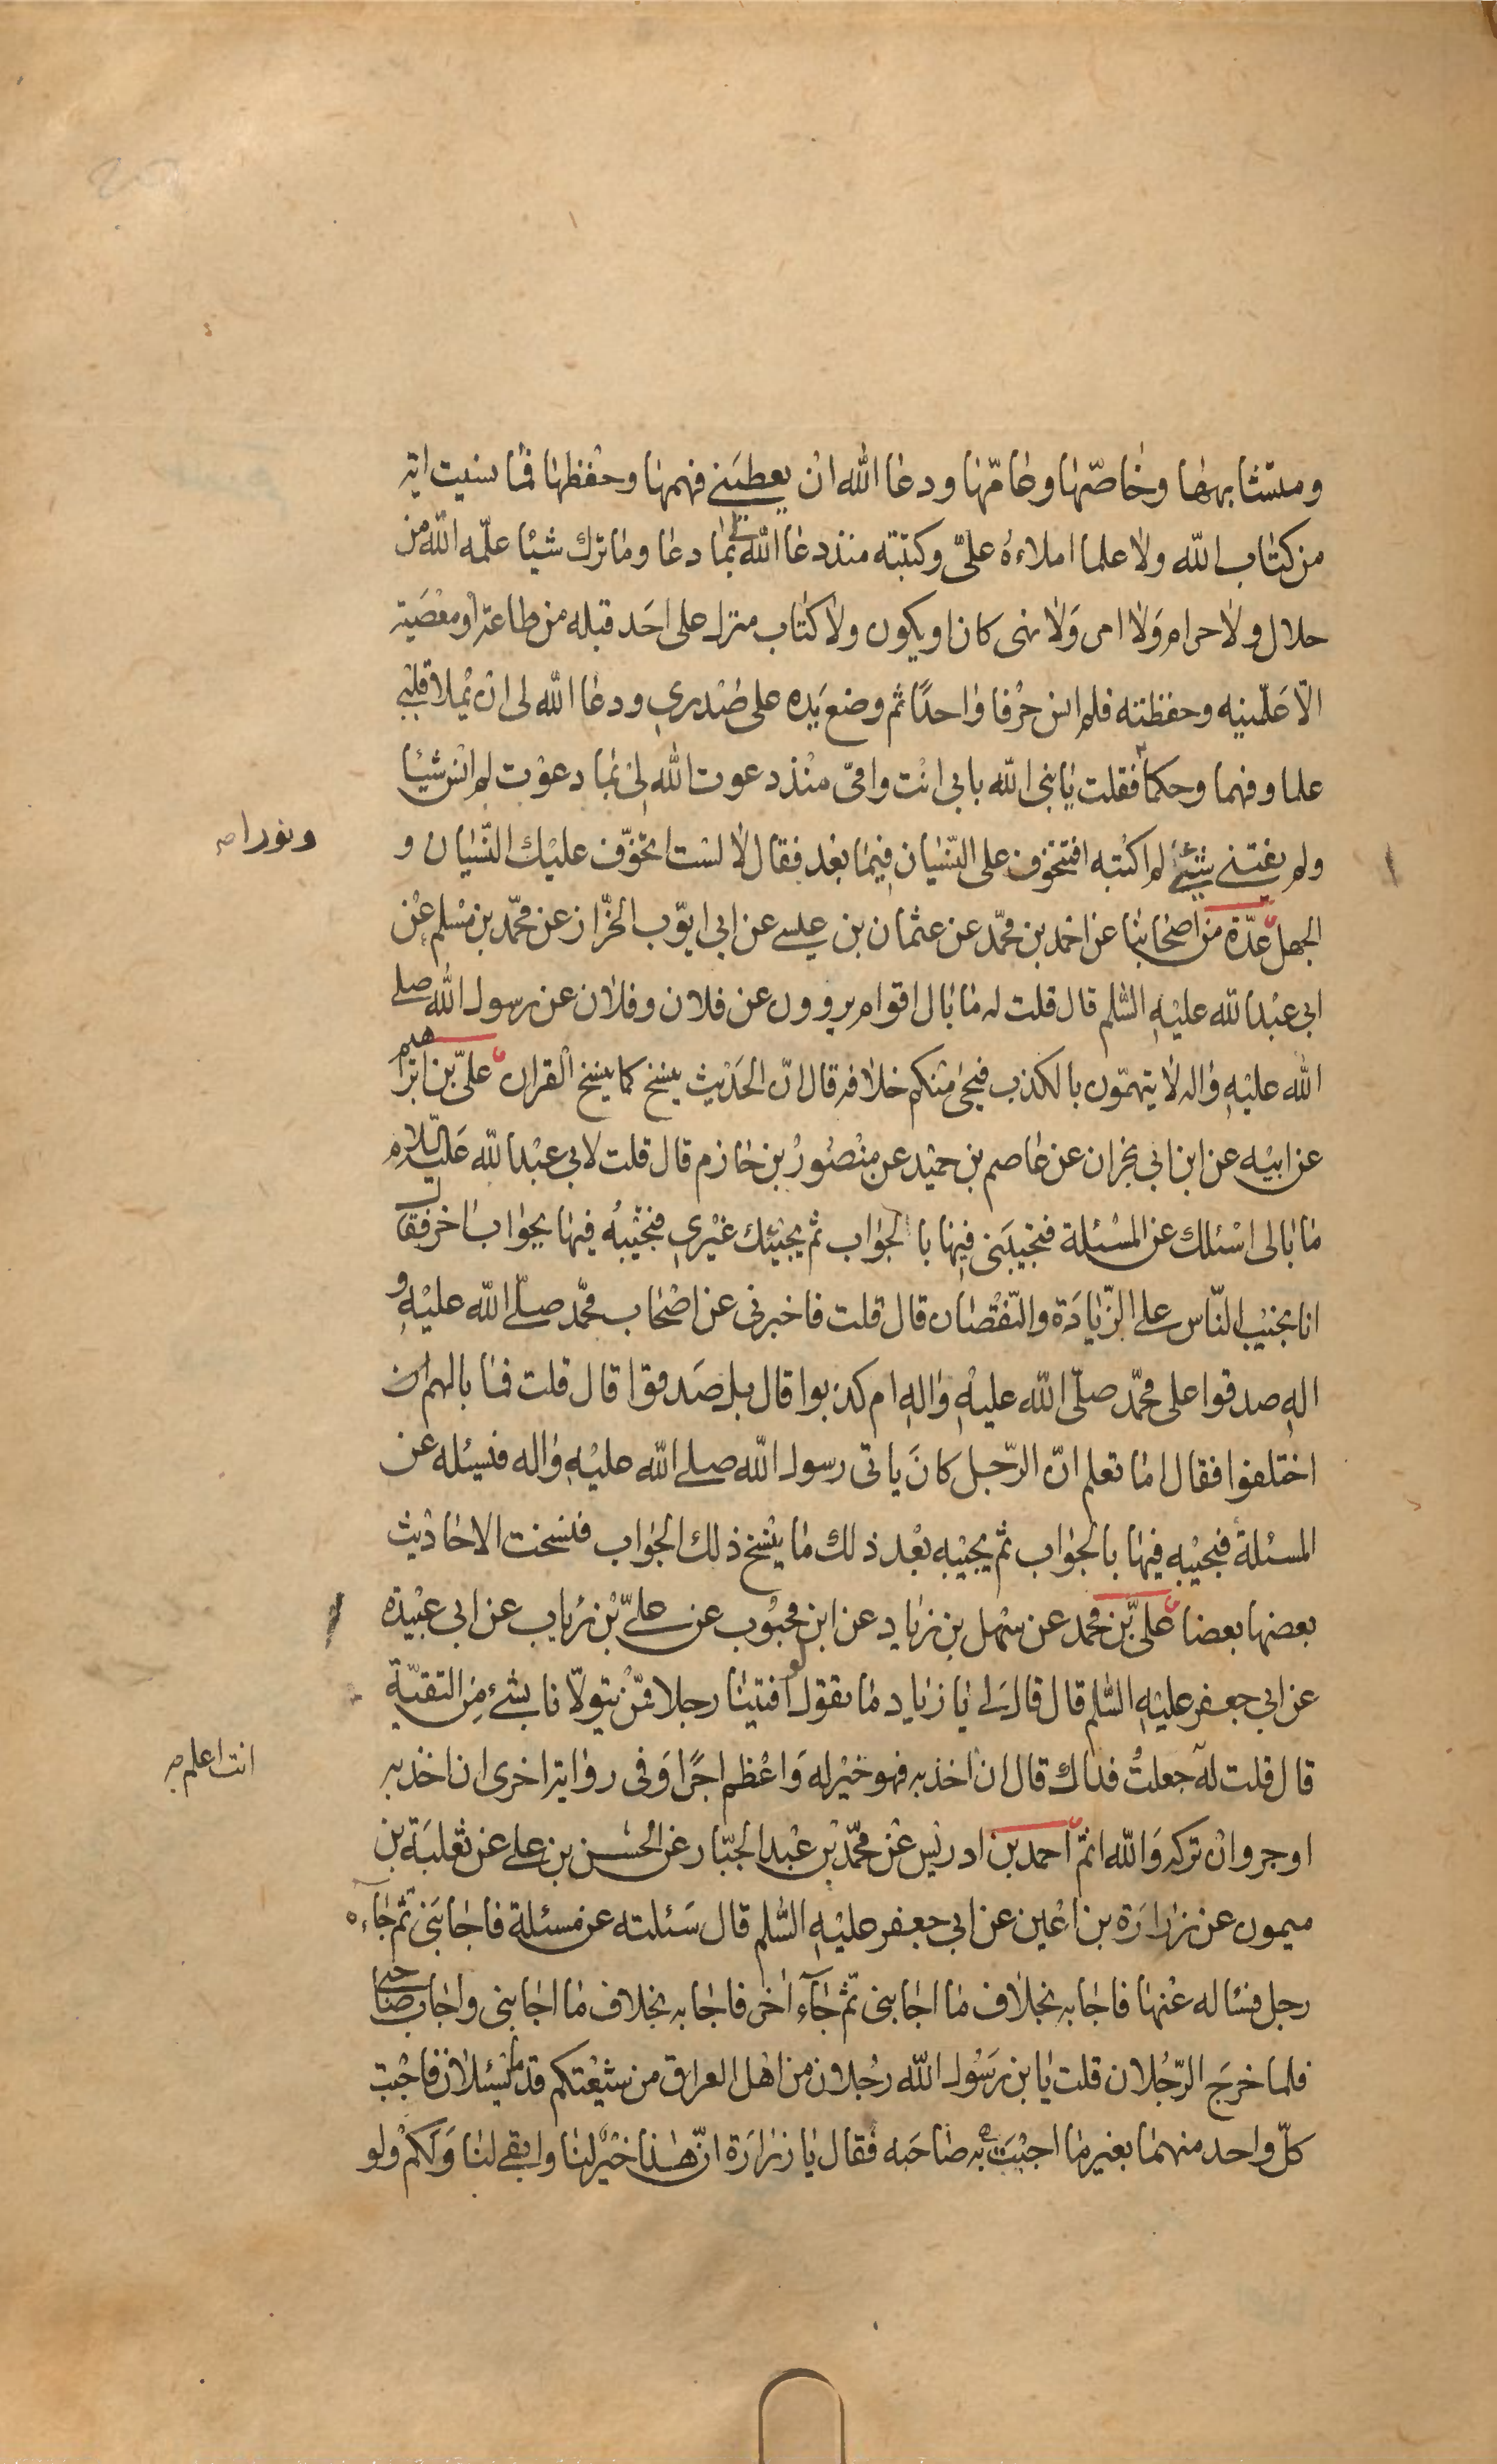 ومتشابهها وخاصّها وعامّها ودعا الله ان يعطيني فهمها وحفظها فما نسيت اية
من كتاب الله ولا علما املاءه علىّ وكتبته منذ دعا الله لي بما دعا وما ترك شيئا علّمه الله من
حلال ولا حرام ولا امر ولا نهى كان او يكون ولا كتاب منزل على احد قبله من طاعة او معصية
الّا علّمنيه وحفظته فلم انس حرفا واحدًا ثم وضع يده على صدري ودعا الله لى ان يملأ قلبي
علما وفهما وحكما فقلت يا بنى الله بابى انت وامّى منذ دعوت الله لى بما دعوت لم انس شيئا
ونورا صح
ولم يفتنى شئ لم اكتبه افتتخوف على النّسيان فيما بعد فقال لا لست اتخوّف عليك النّسيان و
الجهل عدّة من اصحابنا عن احمد بن محمّد عن عثمان بن عيسى عن ابى ايّوب الخزّاز عن محمّد بن مسلم عن
ابى عبد الله عليه السّلم قال قلت له ما بال اقوام يروون عن فلان وفلان عن رسول الله صلى
الله عليه واله لا يتهمّون بالكذب فيجئ منكم خلافه قال انّ الحديث ينسخ كما ينسخ القران علىّ بن ابراهيم
عن ابيه عن ابن ابى نجران عن عاصم بن حميد عن منصور بن حازم قال قلت لابى عبد الله عليه السلام
ما بالى اسئلك عن المسئلة فتجيبنى فيها بالجواب ثم يجيئك غيري فتجيبه فيها بجواب اخر فقال
انا نجيب النّاس على الزّيادة والنّقصان قال قلت فاخبرنى عن اصحاب محمّد صلّى الله عليه و
اله صدقوا على محمّد صلّى الله عليه واله ام كذبوا قال بل صدقوا قال قلت فما بالهم ان
اختلفوا فقال اما تعلم انّ الرّجل كان ياتى رسول الله صلى الله عليه واله فيسئله عن
المسئلة فيجيبه فيها بالجواب ثم يجيبه بعد ذلك ما ينسخ ذلك الجواب فنسخت الاحاديث
بعضها بعضا علىّ بن محمد عن سهل بن زياد عن ابن محبوب عن علىّ بن رئاب عن ابى عبيدة
عن ابى جعفر عليه السّلم قال قال لى يا زياد ما تقول لو افتينا رجلا ممّن يتولّانا بشئ من التقيّة
قال قلت له جعلت فداك قال ان اخذ به فهو خير له واعظم اجرًا وفى رواية اخرى ان اخذ به
انت اعلم صح
اوجر وان تركه والله اثم احمد بن ادريس عن محمّد بن عبد الجبّار عن الحسن بن على عن ثعلبة بن
ميمون عن زرارة بن اعين عن ابى جعفر عليه السّلم قال سئلته عن مسئلة فاجابنى ثم جاءه
رجل فساله عنها فاجابه بخلاف ما اجابنى ثم جاء اخر فاجابه بخلاف ما اجابنى واجاب صاحبى
فلما خرج الرّجلان قلت يا بن رسول الله رجلان من اهل العراق من شيعتكم قدما يسئلان فاجبت
كلّ واحد منهما بغير ما اجبت به صاحبه فقال يا زرارة انّ هذا خير لنا وابقى لنا ولكم ولو